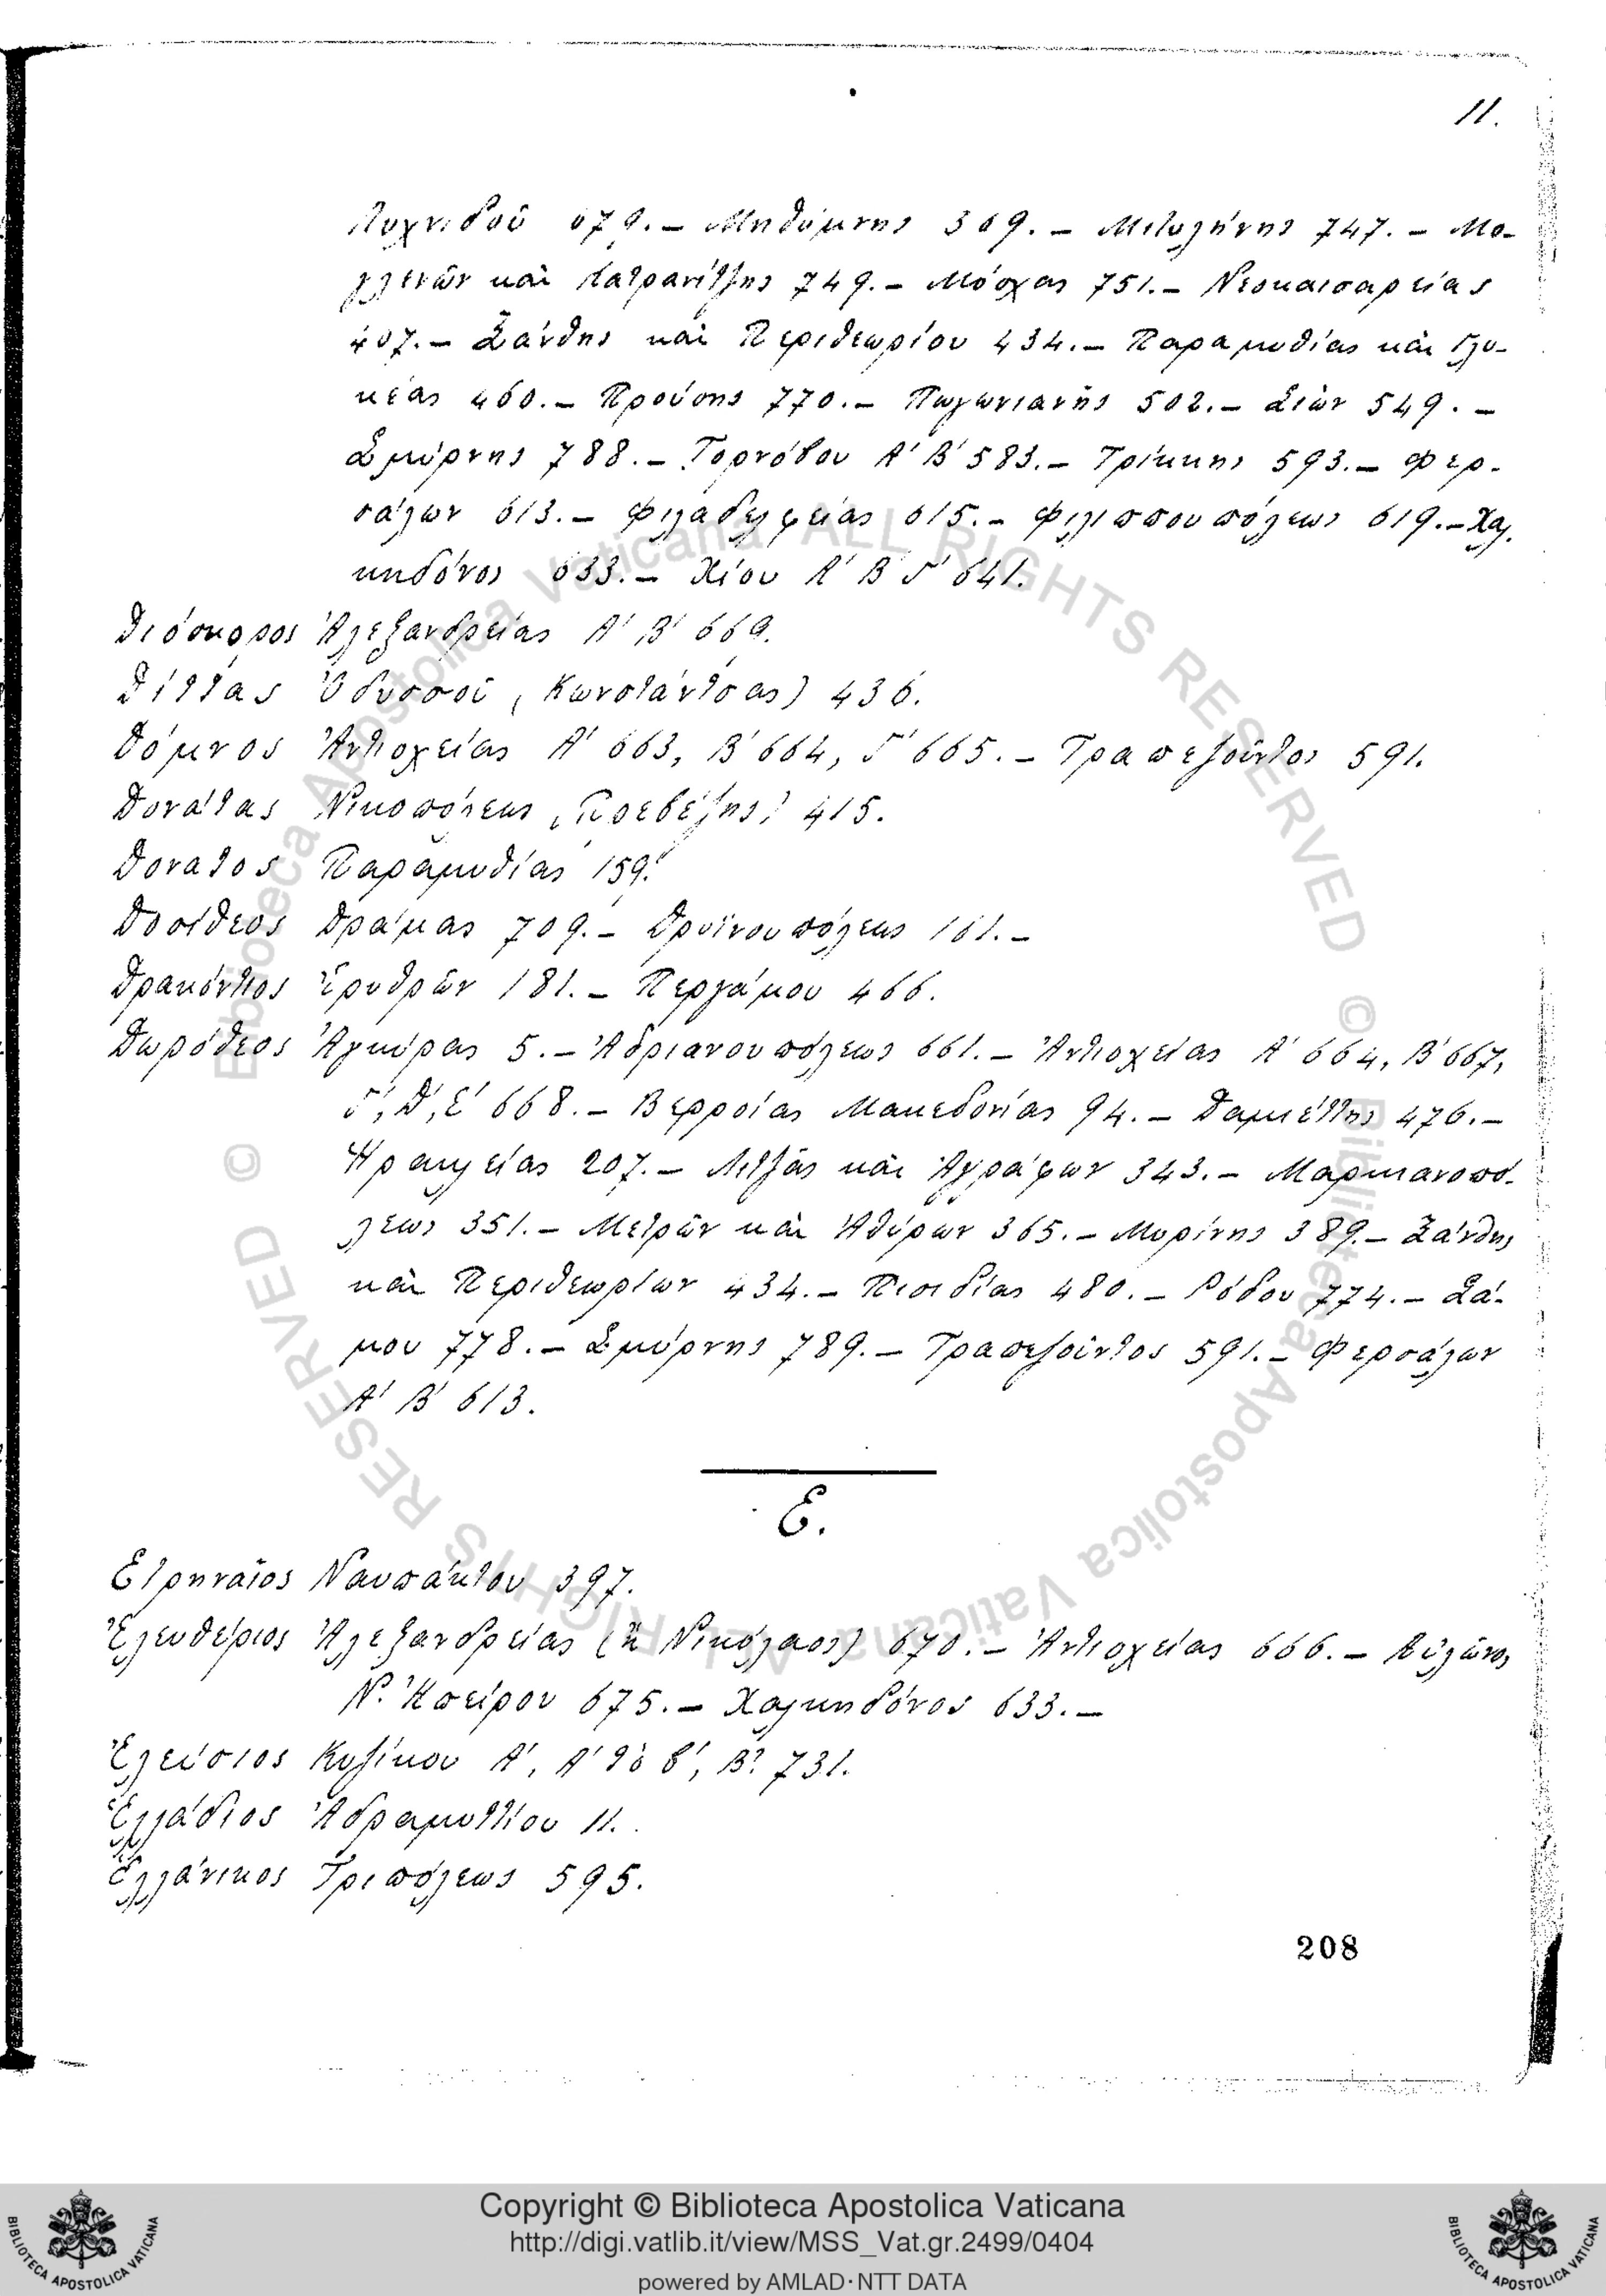 11.
Λυχνιδοῦ 679. – Μηθύμνης 369. – Μιτυλήνης 747. – Μο-
γλενῶν καὶ Κατρανίτζης 749. – Μόσχας 751. – Νεοκαισαρείας
407. – Ξάνθης καὶ Περιθεωρίου 434. – Παραμυθίας καὶ Γλυ-
κέας 460. – Προύσης 770. – Πωγωνιανῆς 502. – Σιὼν 549. –
Σμύρνης 788. – Τορνόβου Α' Β' 583. – Τρίκκης 593. – Φερ-
σάλων 613. – Φιλαδελφείας 615. – Φιλιππουπόλεως 619. – Χαλ-
κηδόνος 633. – Χίου Α' Β' Γ' 641.
Διόσκορος Ἀλεξανδρείας Α' Β' 669.
Δίττας Ὀδυσσοῦ (Κωνστάντσας) 436.
Δόμνος Ἀντιοχείας Α' 663, Β' 664, Γ' 665. – Τραπεζοῦντος 591.
Δονάτας Νικοπόλεως (Πρεβέζης) 415.
Δονατος Παραμυθίας 159.
Δοσίθεος Δράμας 709. – Δρυϊνουπόλεως 161. –
Δρακόντιος Ἐρυθρῶν 181. – Περγάμου 466.
Δωρόθεος Ἀγκύρας 5. – Ἀδριανουπόλεως 661. – Ἀντιοχείας Α' 664, Β' 667,
Γ', Δ', Ε' 668. – Βερροίας Μακεδονίας 94. – Δαμιέττης 476. –
Ἡρακλείας 207. – Λιτζᾶς καὶ Ἀγράφων 343. – Μαρκιανοπό-
λεως 351. – Μετρῶν καὶ Ἀθύρων 365. – Μυρίνης 389. – Ξάνθης
καὶ Περιθεωρίων 434. – Πισιδίας 480. – Ρόδου 774. – Σά-
μου 778. – Σμύρνης 789. – Τραπεζοῦντος 591. – Φερσάλων
Α' Β' 613.
Ε.
Εἰρηναῖος Ναυπάκτου 397.
Ἐλευθέριος Ἀλεξανδρείας (ἢ Νικόλαος) 670. – Ἀντιοχείας 666. – Αὐλῶνος
Ν. Ἠπείρου 675. – Χαλκηδόνος 633. –
Ἐλεύσιος Κυζίκου Α', Α' τὸ β', Β' 731.
Ἑλλάδιος Ἀδραμυττίου 11.
Ἑλλάνικος Τριπόλεως 595.
208
Copyright © Biblioteca Apostolica Vaticana
http://digi.vatlib.it/view/MSS_Vat.gr.2499/0404
powered by AMLAD·NTT DATA
BIBLIOTECA APOSTOLICA VATICANA
BIBLIOTECA APOSTOLICA VATICANA
© Biblioteca Apostolica Vaticana ALL RIGHTS RESERVED
© Biblioteca Apostolica Vaticana ALL RIGHTS RESERVED